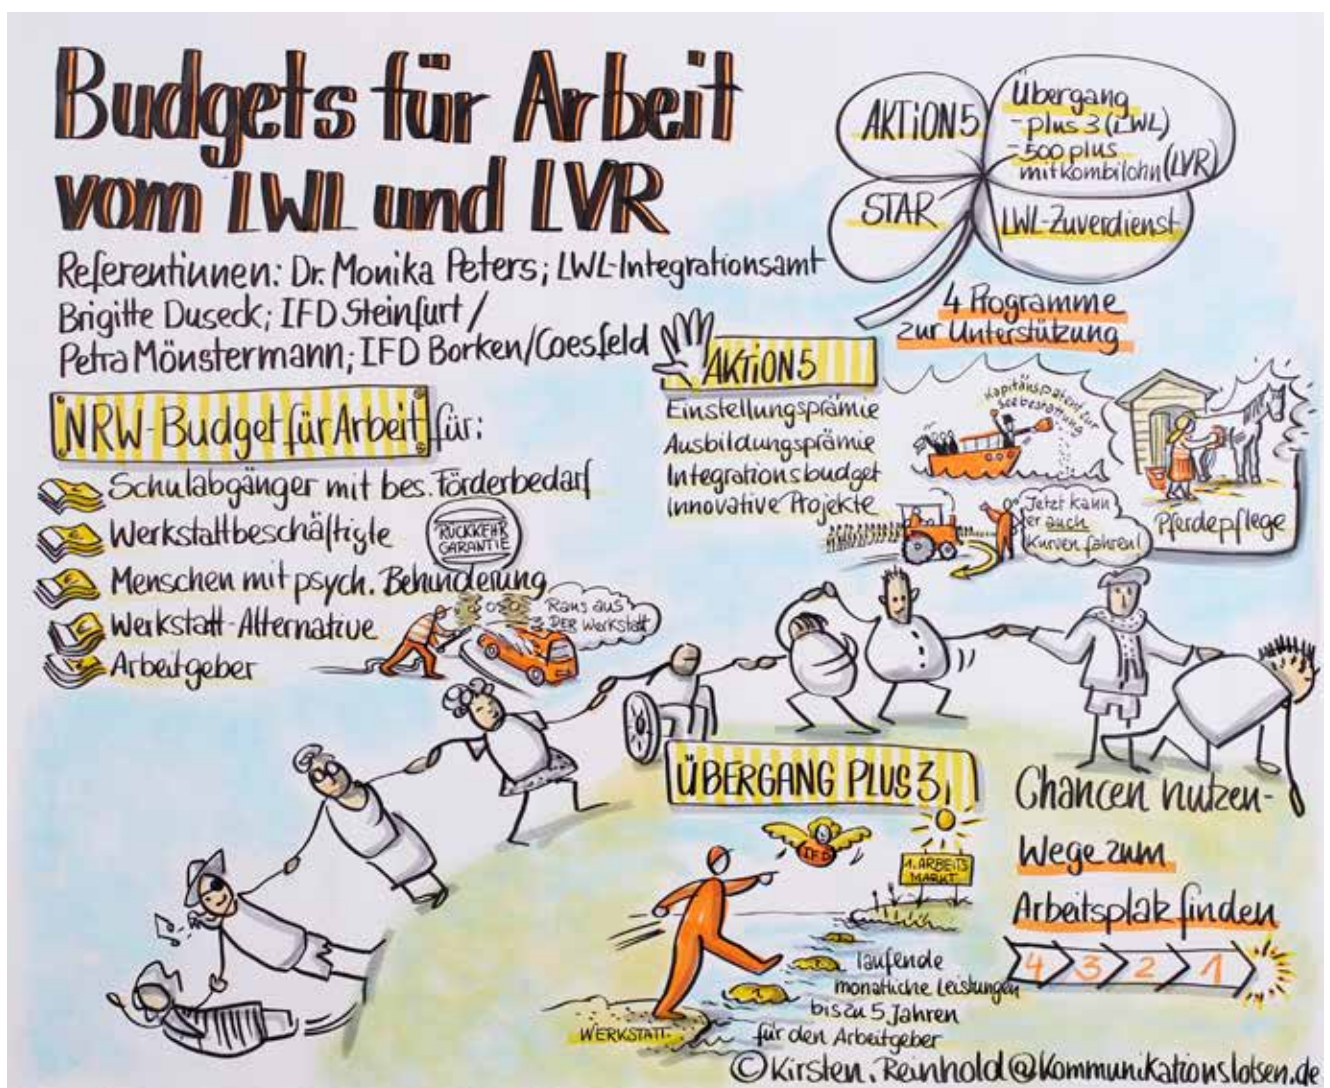 Budgets für Arbeit
vom LWL und LVR
Referentinnen: Dr. Monika Peters; LWL-Integrationsamt
Brigitte Duseck; IFD Steinfurt /
Petra Mönstermann; IFD Borken/Coesfeld
AKTION5
Übergang
- plus 3 (LWL)
- 500 plus
mit Kombilohn (LVR)
STAR
LWL-Zuverdienst
4 Programme
zur Unterstützung
NRW-Budget für Arbeit für:
Schulabgänger mit bes. Förderbedarf
Werkstattbeschäftigte
RÜCKKEHR
GARANTIE
Menschen mit psych. Behinderung
Werkstatt-Alternative
Arbeitgeber
Raus aus
DER Werkstatt
AKTION5
Einstellungsprämie
Ausbildungsprämie
Integrationsbudget
Innovative Projekte
Kapitänspatent zur
Seebestattung
Jetzt kann
er auch
Kurven fahren!
Pferdepflege
ÜBERGANG PLUS 3
IFD
1. ARBEITS
MARKT
WERKSTATT
laufende
monatliche Leistungen
bis zu 5 Jahren
für den Arbeitgeber
Chancen nutzen-
Wege zum
Arbeitsplatz finden
4 3 2 1
© Kirsten.Reinhold@kommunikationslotsen.de